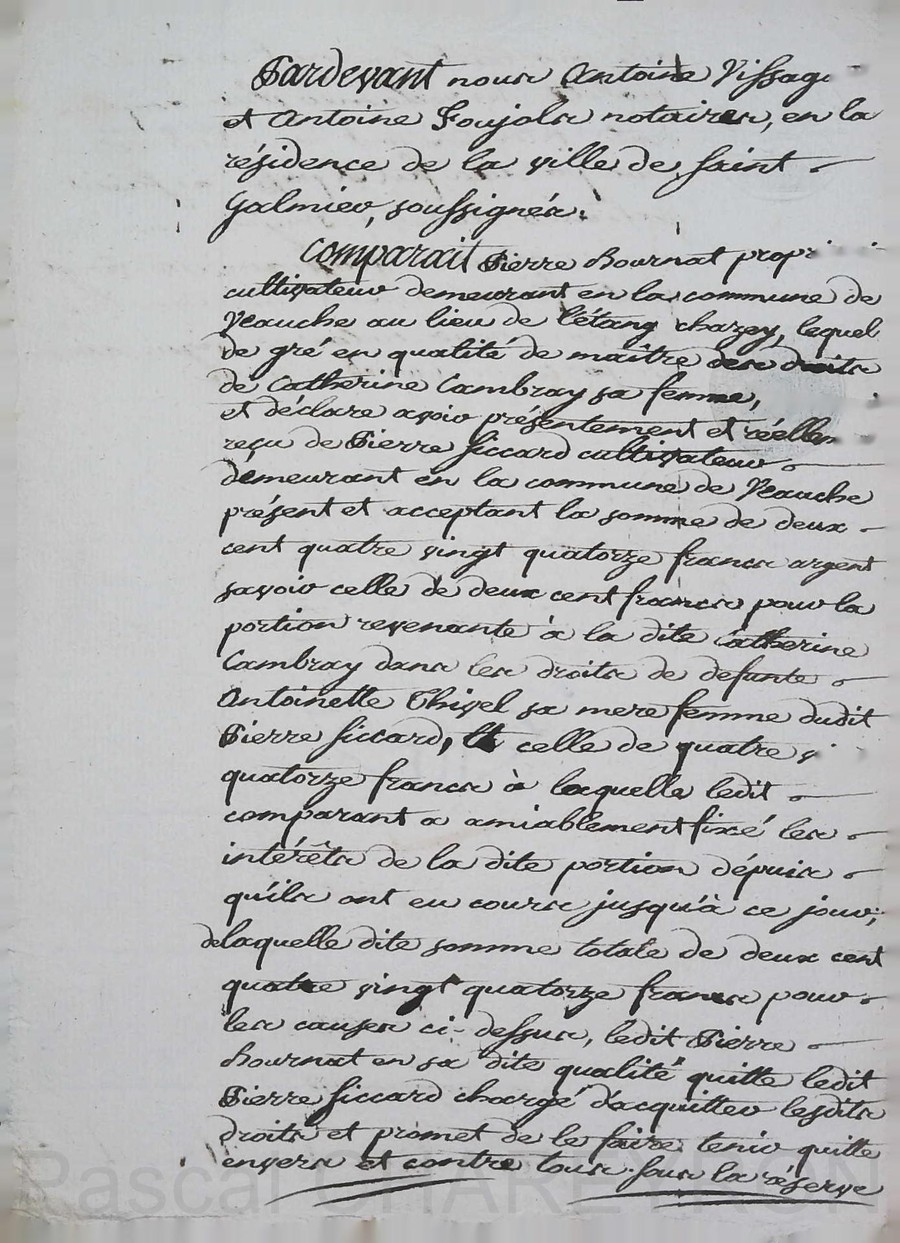 Pardevant nous Antoine Vissag
et Antoine Foujols notaires, en la
résidence de la ville de Saint
Galmier, soussignés.
Comparait Pierre Bournat propr
cultivateur demeurant en la commune de
Veauche au lieu de l'étang chazey, lequel
de gré en qualité de maître des droits
de Catherine Cambray sa femme,
et déclare avoir présentement et réellem
reçu de Pierre Siccard cultivateur
demeurant en la commune de Veauche
présent et acceptant la somme de deux
cent quatre vingt quatorze francs argent
savoir celle de deux cent francs pour la
portion revenante à la dite Catherine
Cambray dans les droits de defunte
Antoinette Thivel sa mere femme dudit
Pierre Siccard, et celle de quatre v
quatorze francs à laquelle ledit
comparant a amiablement fixé les
intérêts de la dite portion dépuis
qu'ils ont eu cours jusqu'à ce jour;
delaquelle dite somme totale de deux cent
quatre vingt quatorze francs pour
les causes ci-dessus, ledit Pierre
Bournat en sa dite qualité quitte ledit
Pierre Siccard chargé d'acquitter lesdits
droits et promet de le faire tenir quitte
envers et contre tous. Sous la réserve
Pascal CHAREYRON